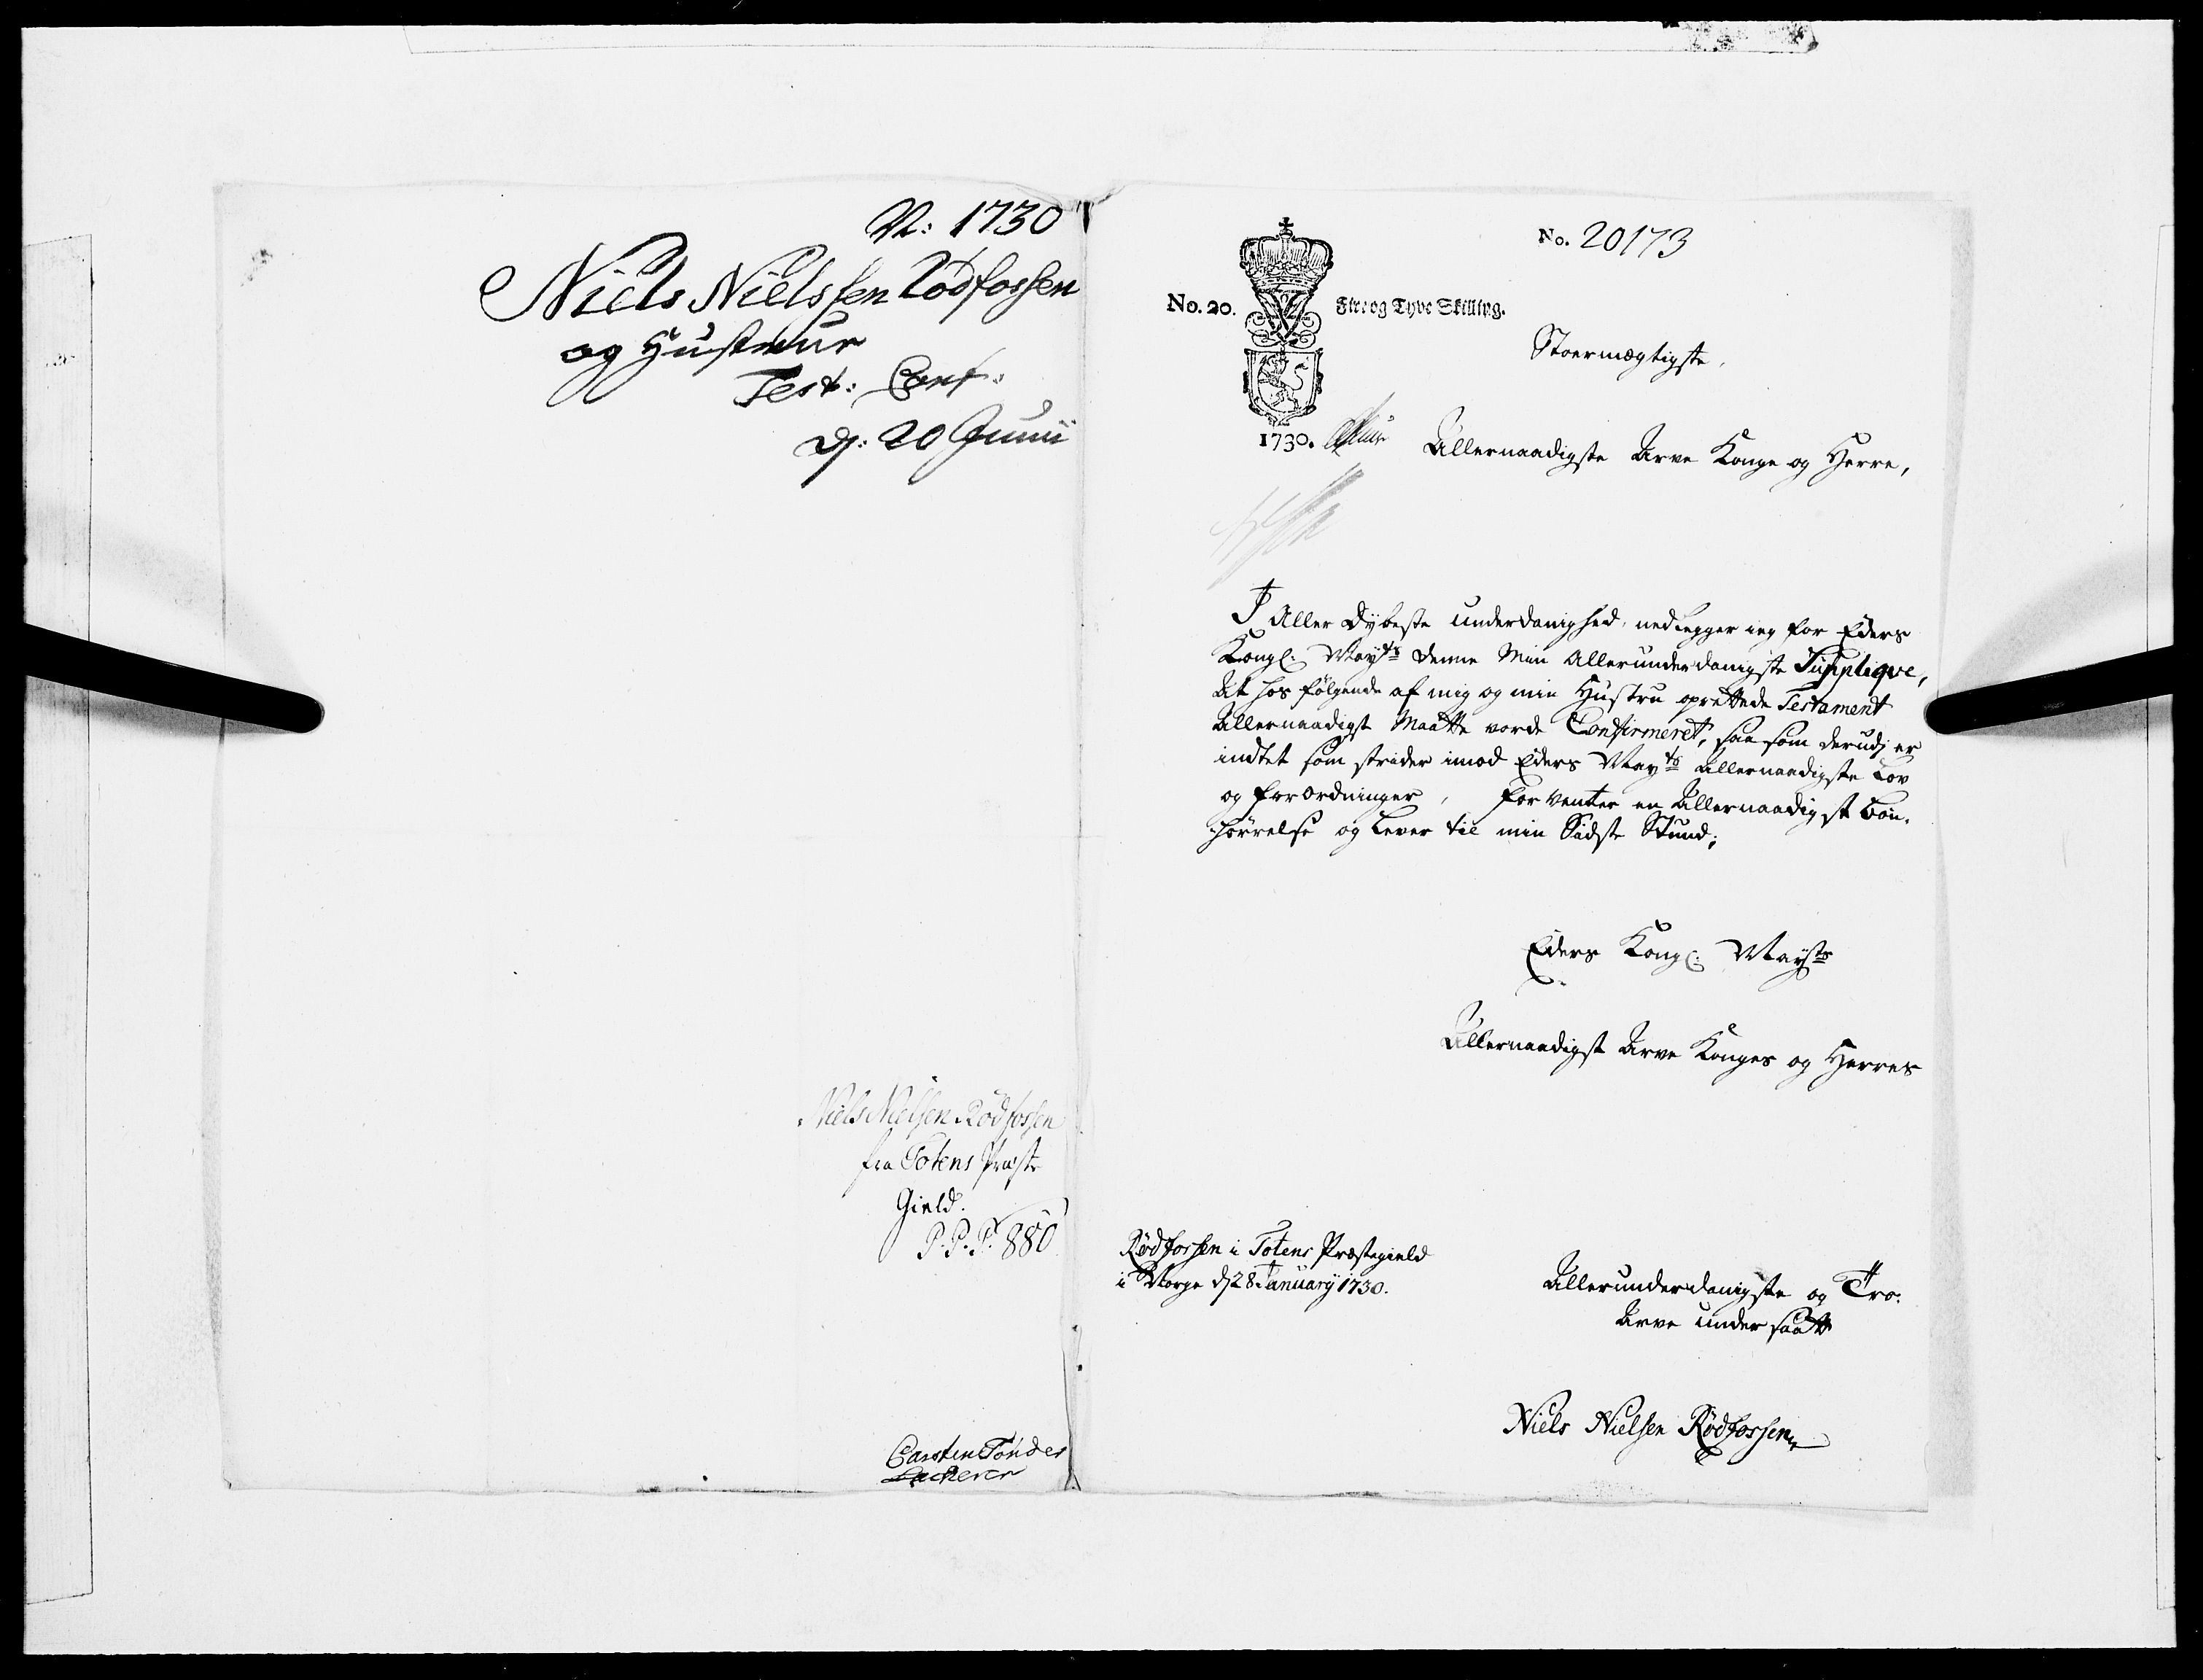 N: 1730
Niels Nielssen Rödfossen
og Hustrue
Test: Conf:
dj: 20 Junii
Niels Nielsen Rödfossen
fra Totens Præste
Gield.
P. P. P. 880
Carsten Tönder
No. 20173
No. 20.
Fire og Tyve Skilling.
1730.
Stoermægtigste,
Allernaadigste Arve Konge og Herre,
I Aller Dybeste underdanighed, nedlegger ieg for Eders
Kongl: Mayts denne Min Allerunderdanigste Supplique,
At hos følgende af mig og min Hustru oprettede Testament
Allernaadigst Maatte vorde Confirmeret, saa som derudj er
indtet som strider imod Eders Mayts Allernaadigste Lov
og forordninger, forventer en Allernaadigst bön-
hörrelse og lever til min Sidste Stund;
Eders Kongl: Mayts
Allernaadigst Arve Konges og Herres
Rødfossen i Totens Præstegield
i Norge dj 28 January 1730.
Allerunderdanigste og Tro-
Arve undersaatt
Niels Nielsen Rødfossen